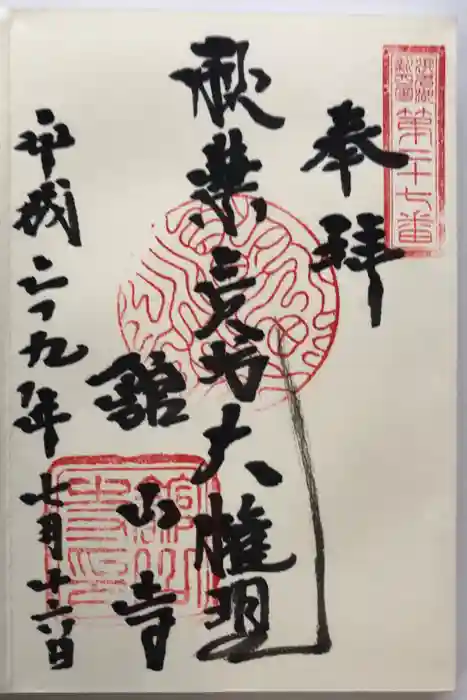 浜名湖新四国
第二十七番
奉拝
秋葉三尺坊大権現
舘山寺
平成二十九年七月十六日